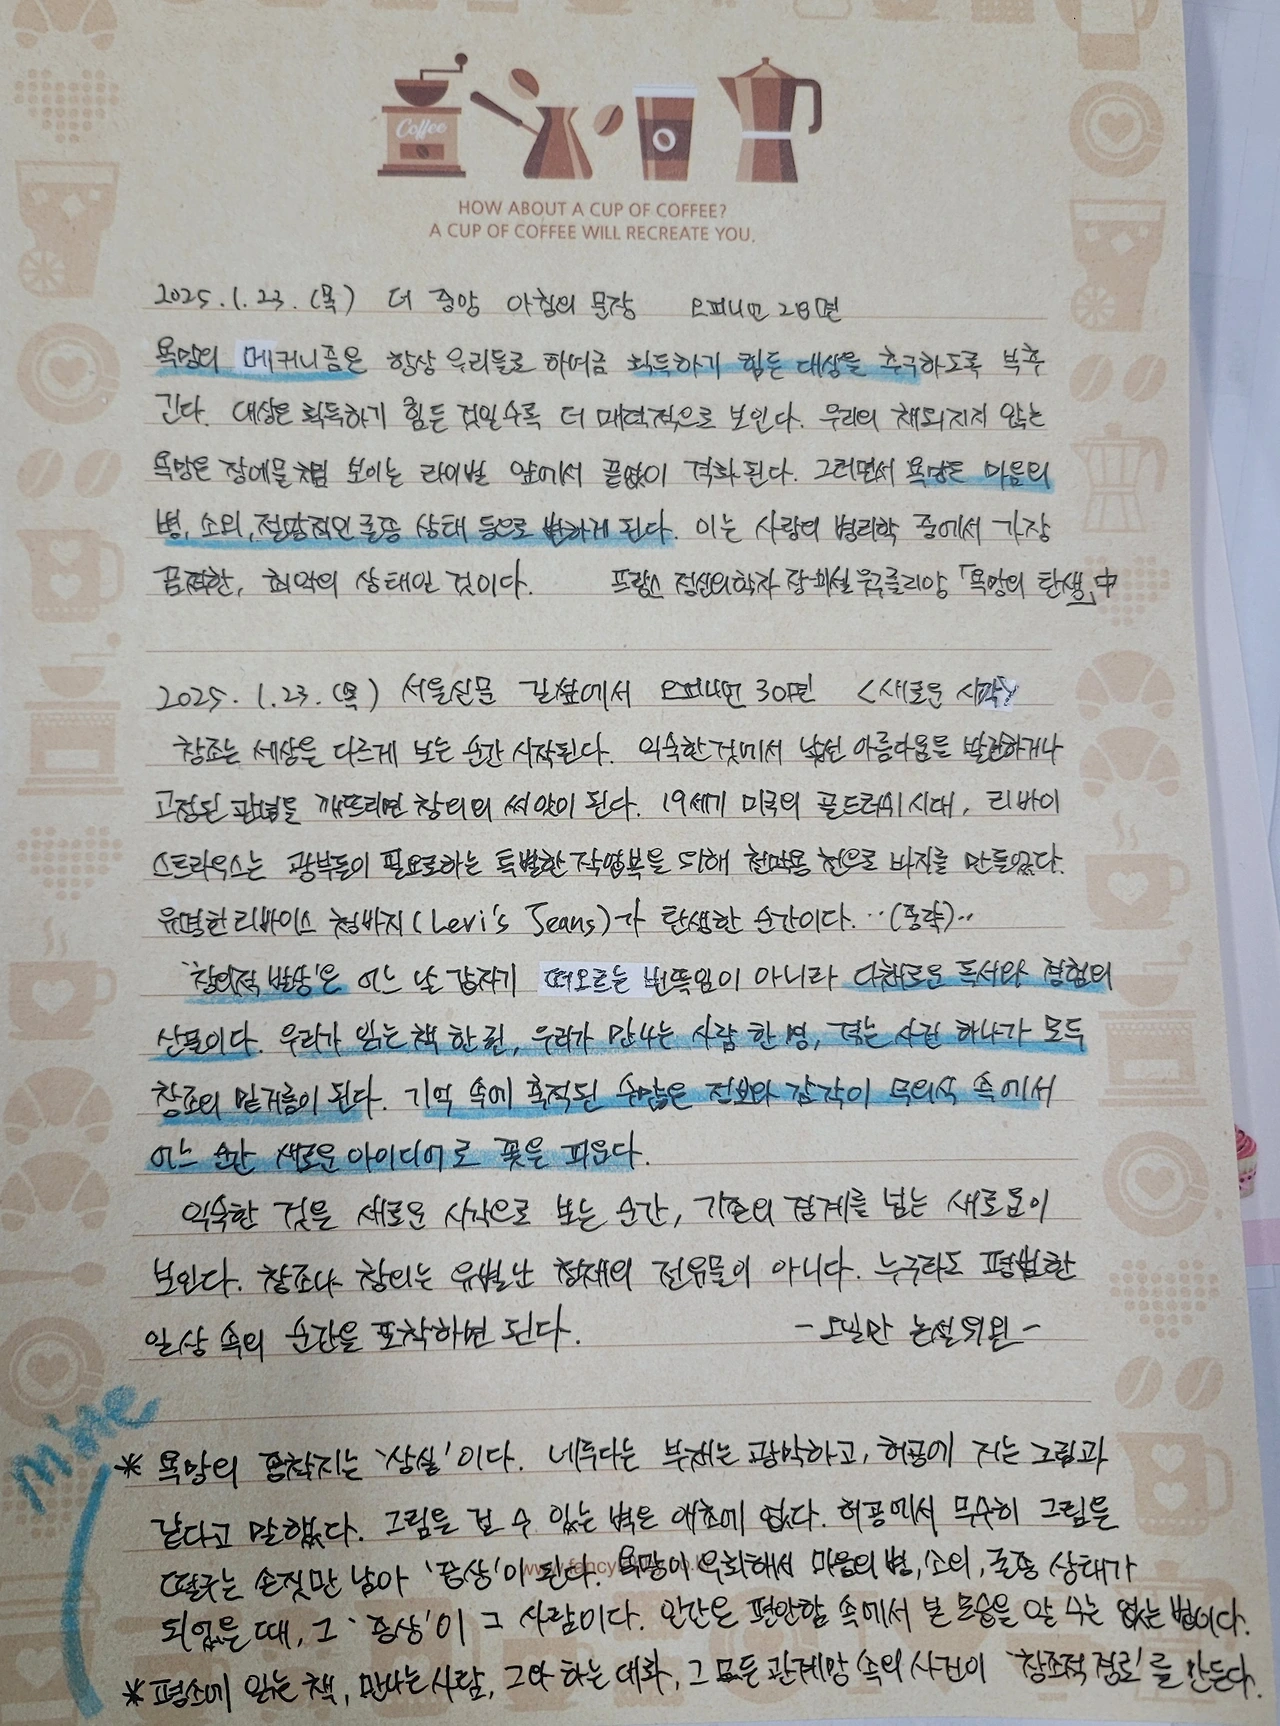 Coffee
HOW ABOUT A CUP OF COFFEE?
A CUP OF COFFEE WILL RECREATE YOU.
2025.1.23.(목) 더 중앙 아침의 문장 오피니언 28면
욕망의 메커니즘은 항상 우리들로 하여금 획득하기 힘든 대상을 추구하도록 부추
긴다. 대상은 획득하기 힘든 것일수록 더 매력적으로 보인다. 우리의 채워지지 않는
욕망은 장애물처럼 보이는 라이벌 앞에서 끝없이 격화된다. 그러면서 욕망은 마음의
병, 소외, 절망적인 굴종 상태 등으로 변하게 된다. 이는 사랑의 병리학 중에서 가장
끔찍한, 최악의 상태인 것이다. 프랑스 정신의학자 장 미셸 우구를리앙 「욕망의 탄생」中
2025.1.23.(목) 서울신문 길섶에서 오피니언 30면 <새로운 시작>
창조는 세상을 다르게 보는 순간 시작된다. 익숙한 것에서 낯선 아름다움을 발견하거나
고정된 관념을 깨뜨리면 창의의 씨앗이 된다. 19세기 미국의 골드러쉬 시대, 리바이
스트라우스는 광부들이 필요로하는 특별한 작업복을 위해 천막용 천으로 바지를 만들었다.
유명한 리바이스 청바지(Levi's Jeans)가 탄생한 순간이다. ··(중략)··
'창의적 발상'은 어느 날 갑자기 떠오르는 번뜩임이 아니라 다채로운 독서와 경험의
산물이다. 우리가 읽는 책 한 권, 우리가 만나는 사람 한 명, 겪는 사건 하나가 모두
창조의 밑거름이 된다. 기억 속에 축적된 수많은 정보와 감각이 무의식 속에서
어느 순간 새로운 아이디어로 꽃을 피운다.
익숙한 것을 새로운 시각으로 보는 순간, 기존의 경계를 넘는 새로움이
보인다. 창조나 창의는 유별난 천재의 전유물이 아니다. 누구라도 평범한
일상 속의 순간을 포착하면 된다. - 오일만 논설위원 -
mine
* 욕망의 종착지는 '상실'이다. 네루다는 부재는 광막하고, 허공에 거는 그림과
같다고 말했다. 그림을 걸 수 있는 벽은 애초에 없다. 허공에서 무수히 그림을
떨구는 손짓만 남아 '증상'이 된다. 욕망이 악화해서 마음의 병, 소외, 굴종 상태가
되었을 때, 그 '증상'이 그 사람이다. 인간은 편안함 속에서 본 모습을 알 수는 없는 법이다.
* 평소에 읽는 책, 만나는 사람, 그와 하는 대화, 그 모든 관계망 속의 사건이 '창조적 경로'를 만든다.